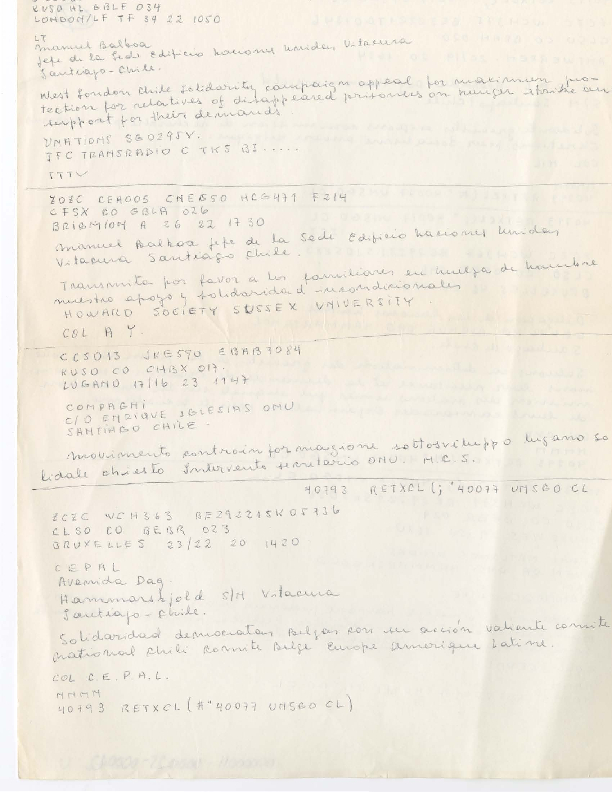 KUSO HL GBLF 034
LONDON/LF TF 34 22 1050
LT
Manuel Balboa
Jefe de la Sede Edificio Naciones Unidas Vitacura
Santiago-Chile.
West London Chile Solidarity campaign appeal for maximum pro-
tection for relatives of disappeared prisoners on hunger strike an
support for their demands
UNATIONS SGO295V.
TFC TRANSRADIO C TKS BI.....
ZCZC CERGOS CNE850 HCG479 F214
CFSX CO GBLA 026
A 26 22 1730
Manuel Balboa jefe de la Sede Edificio Naciones Unidas
Vitacura Santiago Chile.
Transmita por favor a los familiares en huelga de hambre
nuestro apoyo y solidaridad incondicionales
HOWARD SOCIETY SUSSEX UNIVERSITY.
COL A Y.
CCS013 EBAB7984
KUSO CO CHBX 017.
LUGANO 17/16 23 1947
COMPAGNI
C/O ENRIQUE IGLESIAS OMU
SANTIAGO CHILE.
Movimento controinformazione sottosviluppo lugano so
lidale chiesto Intervento secretario OMU. M.C.S.
40793 RETXCL (; "40077 UMSGO CL
ZCZC WCH363
CLSO CO BEBR 023
BRUXELLES 23/22 20 1420
CEPAL
Avenida Dag.
Hammarskjold S/N Vitacura
Santiago-Chile.
Solidaridad democratas Belgas con su acción valiante comite
national Chili comite Belge Europe Amerique Latine.
COL C.E.P.A.L.
MMMM
40793 RETXCL (#"40077 UMSGO CL)